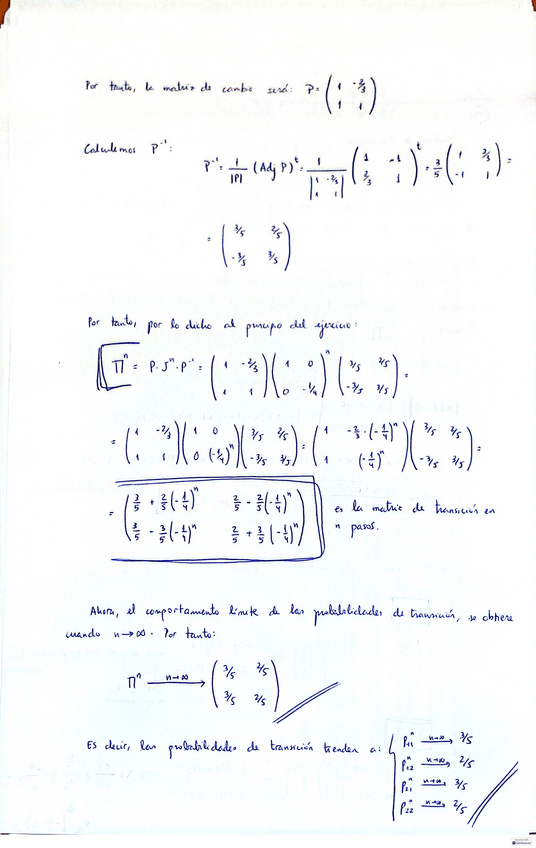 Por tanto, la matriz de cambio será: P = ( 1 -2/3 ; 1 1 )
Calculemos P⁻¹:
P⁻¹ = 1/|P| (Adj P)ᵗ = 1/| 1 -2/3 ; 1 1 | ( 1 -1 ; 2/3 1 )ᵗ = 3/5 ( 1 2/3 ; -1 1 ) =
= ( 3/5 2/5 ; -3/5 3/5 )
Por tanto, por lo dicho al principio del ejercicio:
Πⁿ = P · Jⁿ · P⁻¹ = ( 1 -2/3 ; 1 1 ) ( 1 0 ; 0 -1/4 )ⁿ ( 3/5 2/5 ; -3/5 3/5 ) =
= ( 1 -2/3 ; 1 1 ) ( 1 0 ; 0 (-1/4)ⁿ ) ( 3/5 2/5 ; -3/5 3/5 ) = ( 1 -2/3 · (-1/4)ⁿ ; 1 (-1/4)ⁿ ) ( 3/5 2/5 ; -3/5 3/5 ) =
= ( 3/5 + 2/5 (-1/4)ⁿ 2/5 - 2/5 (-1/4)ⁿ ; 3/5 - 3/5 (-1/4)ⁿ 2/5 + 3/5 (-1/4)ⁿ ) es la matriz de transición en
n pasos.
Ahora, el comportamiento límite de las probabilidades de transición, se obtiene
cuando n→∞. Por tanto:
Πⁿ n→∞ ⟶ ( 3/5 2/5 ; 3/5 2/5 )
Es decir, las probabilidades de transición tienden a: { P₁₁ⁿ n→∞ ⟶ 3/5
P₁₂ⁿ n→∞ ⟶ 2/5
P₂₁ⁿ n→∞ ⟶ 3/5
P₂₂ⁿ n→∞ ⟶ 2/5